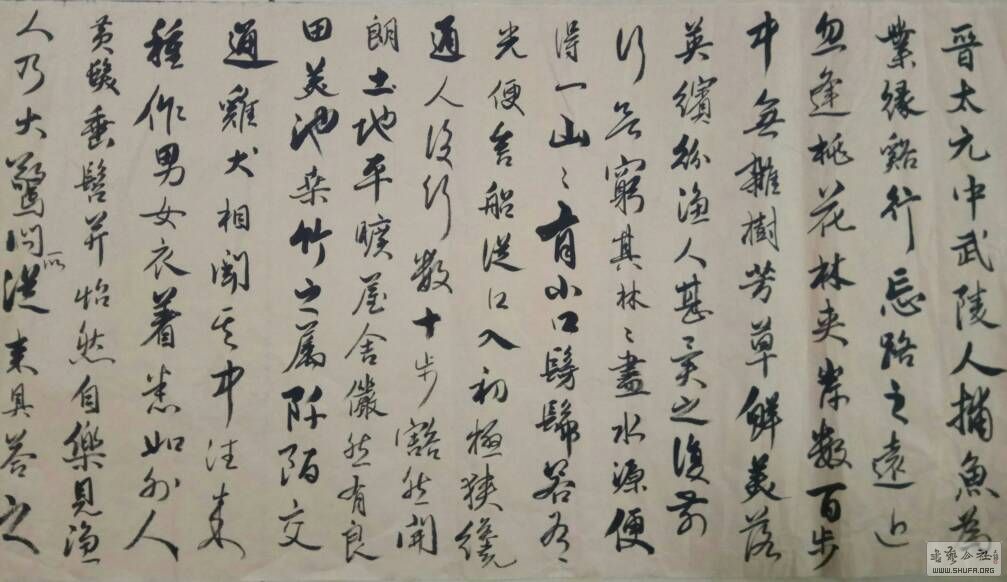 晉太元中武陵人捕魚為
業緣谿行忘路之遠近
忽逢桃花林夾岸數百步
中無雜樹芳草鮮美落
英繽紛漁人甚異之復前
行欲窮其林〻盡水源便
得一山〻有小口髣髴若有
光便舍船從口入初極狹纔
通人復行數十步豁然開
朗土地平曠屋舍儼然有良
田美池桑竹之屬阡陌交
通雞犬相聞其中往來
種作男女衣著悉如外人
黃髮垂髫並怡然自樂見漁
人乃大驚問所從來具答之
書藝公社
WWW.SHUFA.ORG